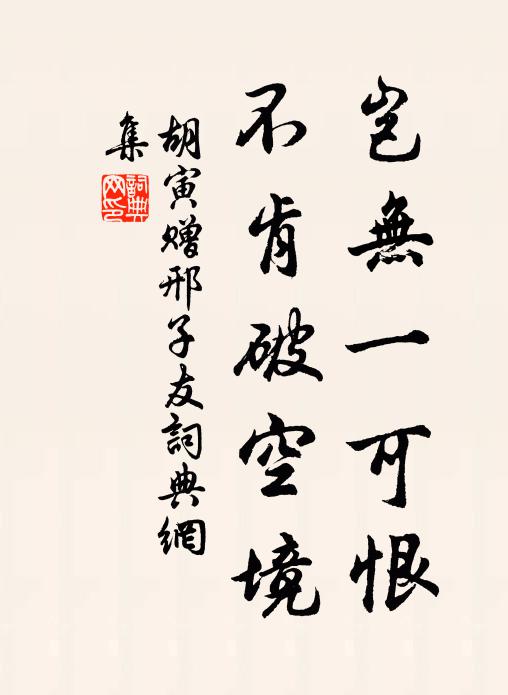 豈無一可恨
不肯破空境
胡寅贈邢子友詞典網
集
詞典網印